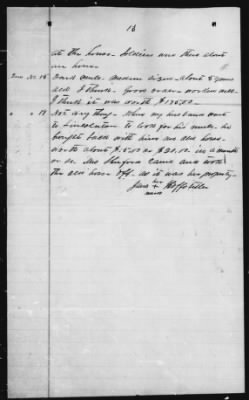 13
at the house. Soldiers was there about
our house.
Ques No. 16 Dark mule. medium size. about 8 years
old I think. Good order. worked well.
I think it was worth $135.00.
" " 17 Not any thing. When my husband went
to Lincolnton to look for his mule, he
brought back with him an old horse.
worth about $15.00 or $20.00. in a month
or so. Mr Shuford came and took
the old horse off. as it was his property.
her
Jane + Hoffstetler
mark